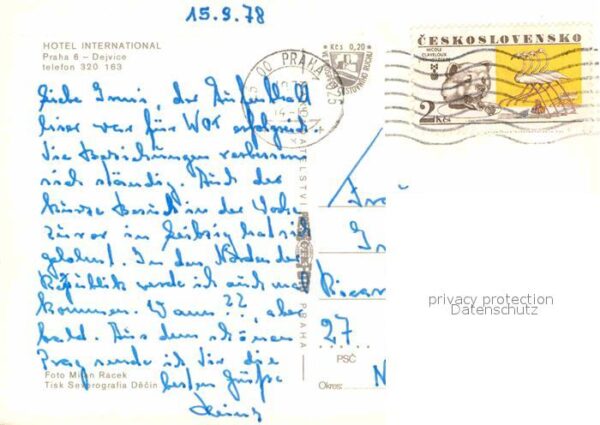 15.9.78
HOTEL INTERNATIONAL
Praha 6 - Dejvice
telefon 320 163
Kčs 0,20
ČESKOSLOVENSKO
NICOLE
CLAVELOUX
2 Kčs
PRAHA
Liebe, der Aufenthalt
hier war für erfolgreich
Die Beziehungen verbessern
sich ständig. Auch der
kurze Besuch in der Woche
zuvor in Leipzig hat sich
gelohnt. In den Norden der
Republik werde ich auch mal
kommen. Wann??, aber
bald. Aus dem schönen
Prag sende ich Dir die
besten Grüße
Heinz
27
PSČ
Okres: N
PRAHA
Foto Milan Racek
Tisk Severografia Děčín
privacy protection
Datenschutz